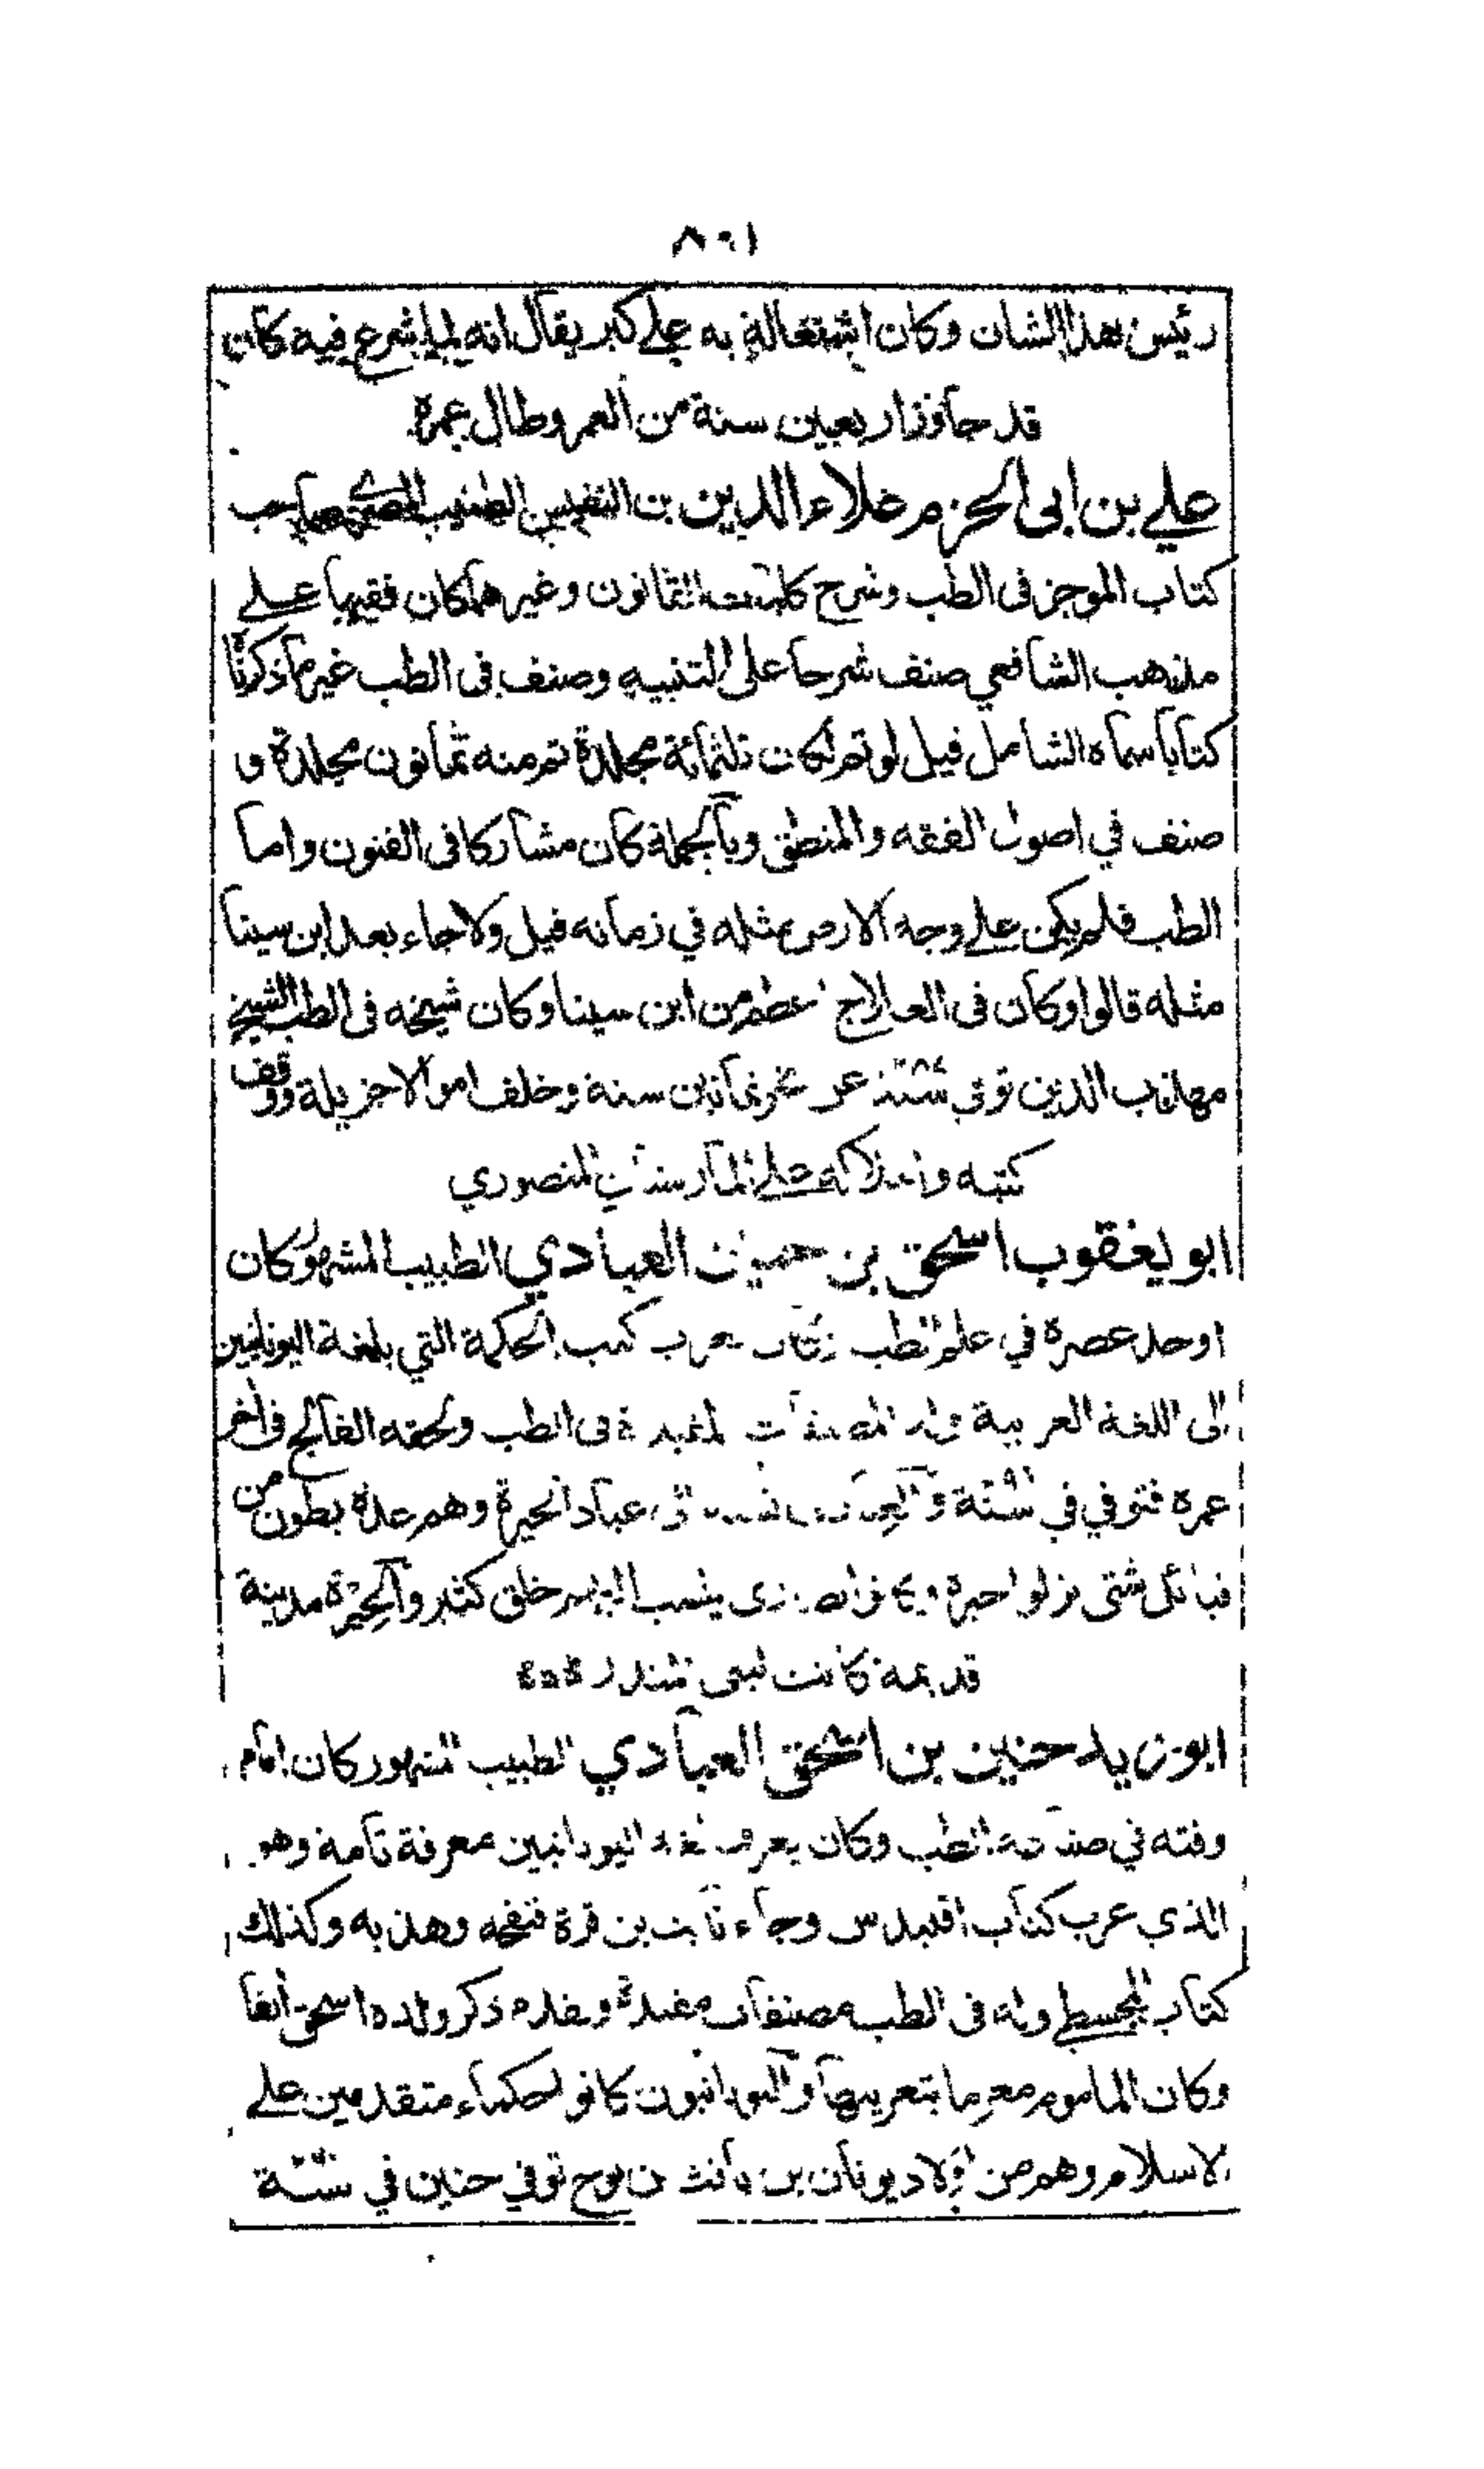 رئيس هذا الشان وكان اشتغاله به على كبر يقال انه لما شرع فيه كان
قد جاوز اربعين سنة من العمر وطال عمره
علي بن ابى الحزم علاء الدين بن النفيس الطبيب المصري صاحب
كتاب الموجز فى الطب وشرح كليات القانون وغيرهما كان فقيها على
مذهب الشافعي صنف شرحا على التنبيه وصنف فى الطب غير ما ذكرنا
كتابا سماه الشامل قيل لو تم لكان ثلثمائة مجلدة تم منه ثمانون مجلدة و
صنف في اصول الفقه والمنطق وبالجملة كان مشاركا فى الفنون واما
الطب فلم يكن على وجه الارض مثله في زمانه قيل ولا جاء بعد ابن سينا
مثله قالوا وكان فى العلاج اعظم من ابن سينا وكان شيخه فى الطب الشيخ
مهذب الدين توفي عن نحو ثمانين سنة وخلف اموالا جزيلة ووقف
كتبه واملاكه على المارستان المنصوري
ابو يعقوب اسحق بن حنين العبادي الطبيب المشهور كان
اوحد عصره في علم الطب وكان يعرب كتب الحكمة التي بلغة اليونانيين
الى اللغة العربية وله المصنفات المفيدة فى الطب ولحقه الفالج فى اخر
عمره فتوفي في سنة والعبادي نسبة الى عباد الحيرة وهم عدة بطون من
قبائل شتى نزلوا الحيرة وكانوا نصارى ينسب اليهم خلق كثير والحيرة مدينة
قديمة كانت لبنى المنذر
ابو زيد حنين بن اسحق العبادي الطبيب المشهور كان امام
وقته في صناعة الطب وكان يعرف لغة اليونانيين معرفة تامة وهو
الذي عرب كتاب اقليدس وجاء ثابت بن قرة فنقحه وهذبه وكذلك
كتاب المجسطي وله فى الطب مصنفات مفيدة وتقدم ذكر ولده اسحق انفا
وكان المامون مغرما بتعريبها واليونانيون كانوا حكماء متقدمين على
الاسلام وهم من اولاد يونان بن يافث بن نوح توفي حنين في سنة